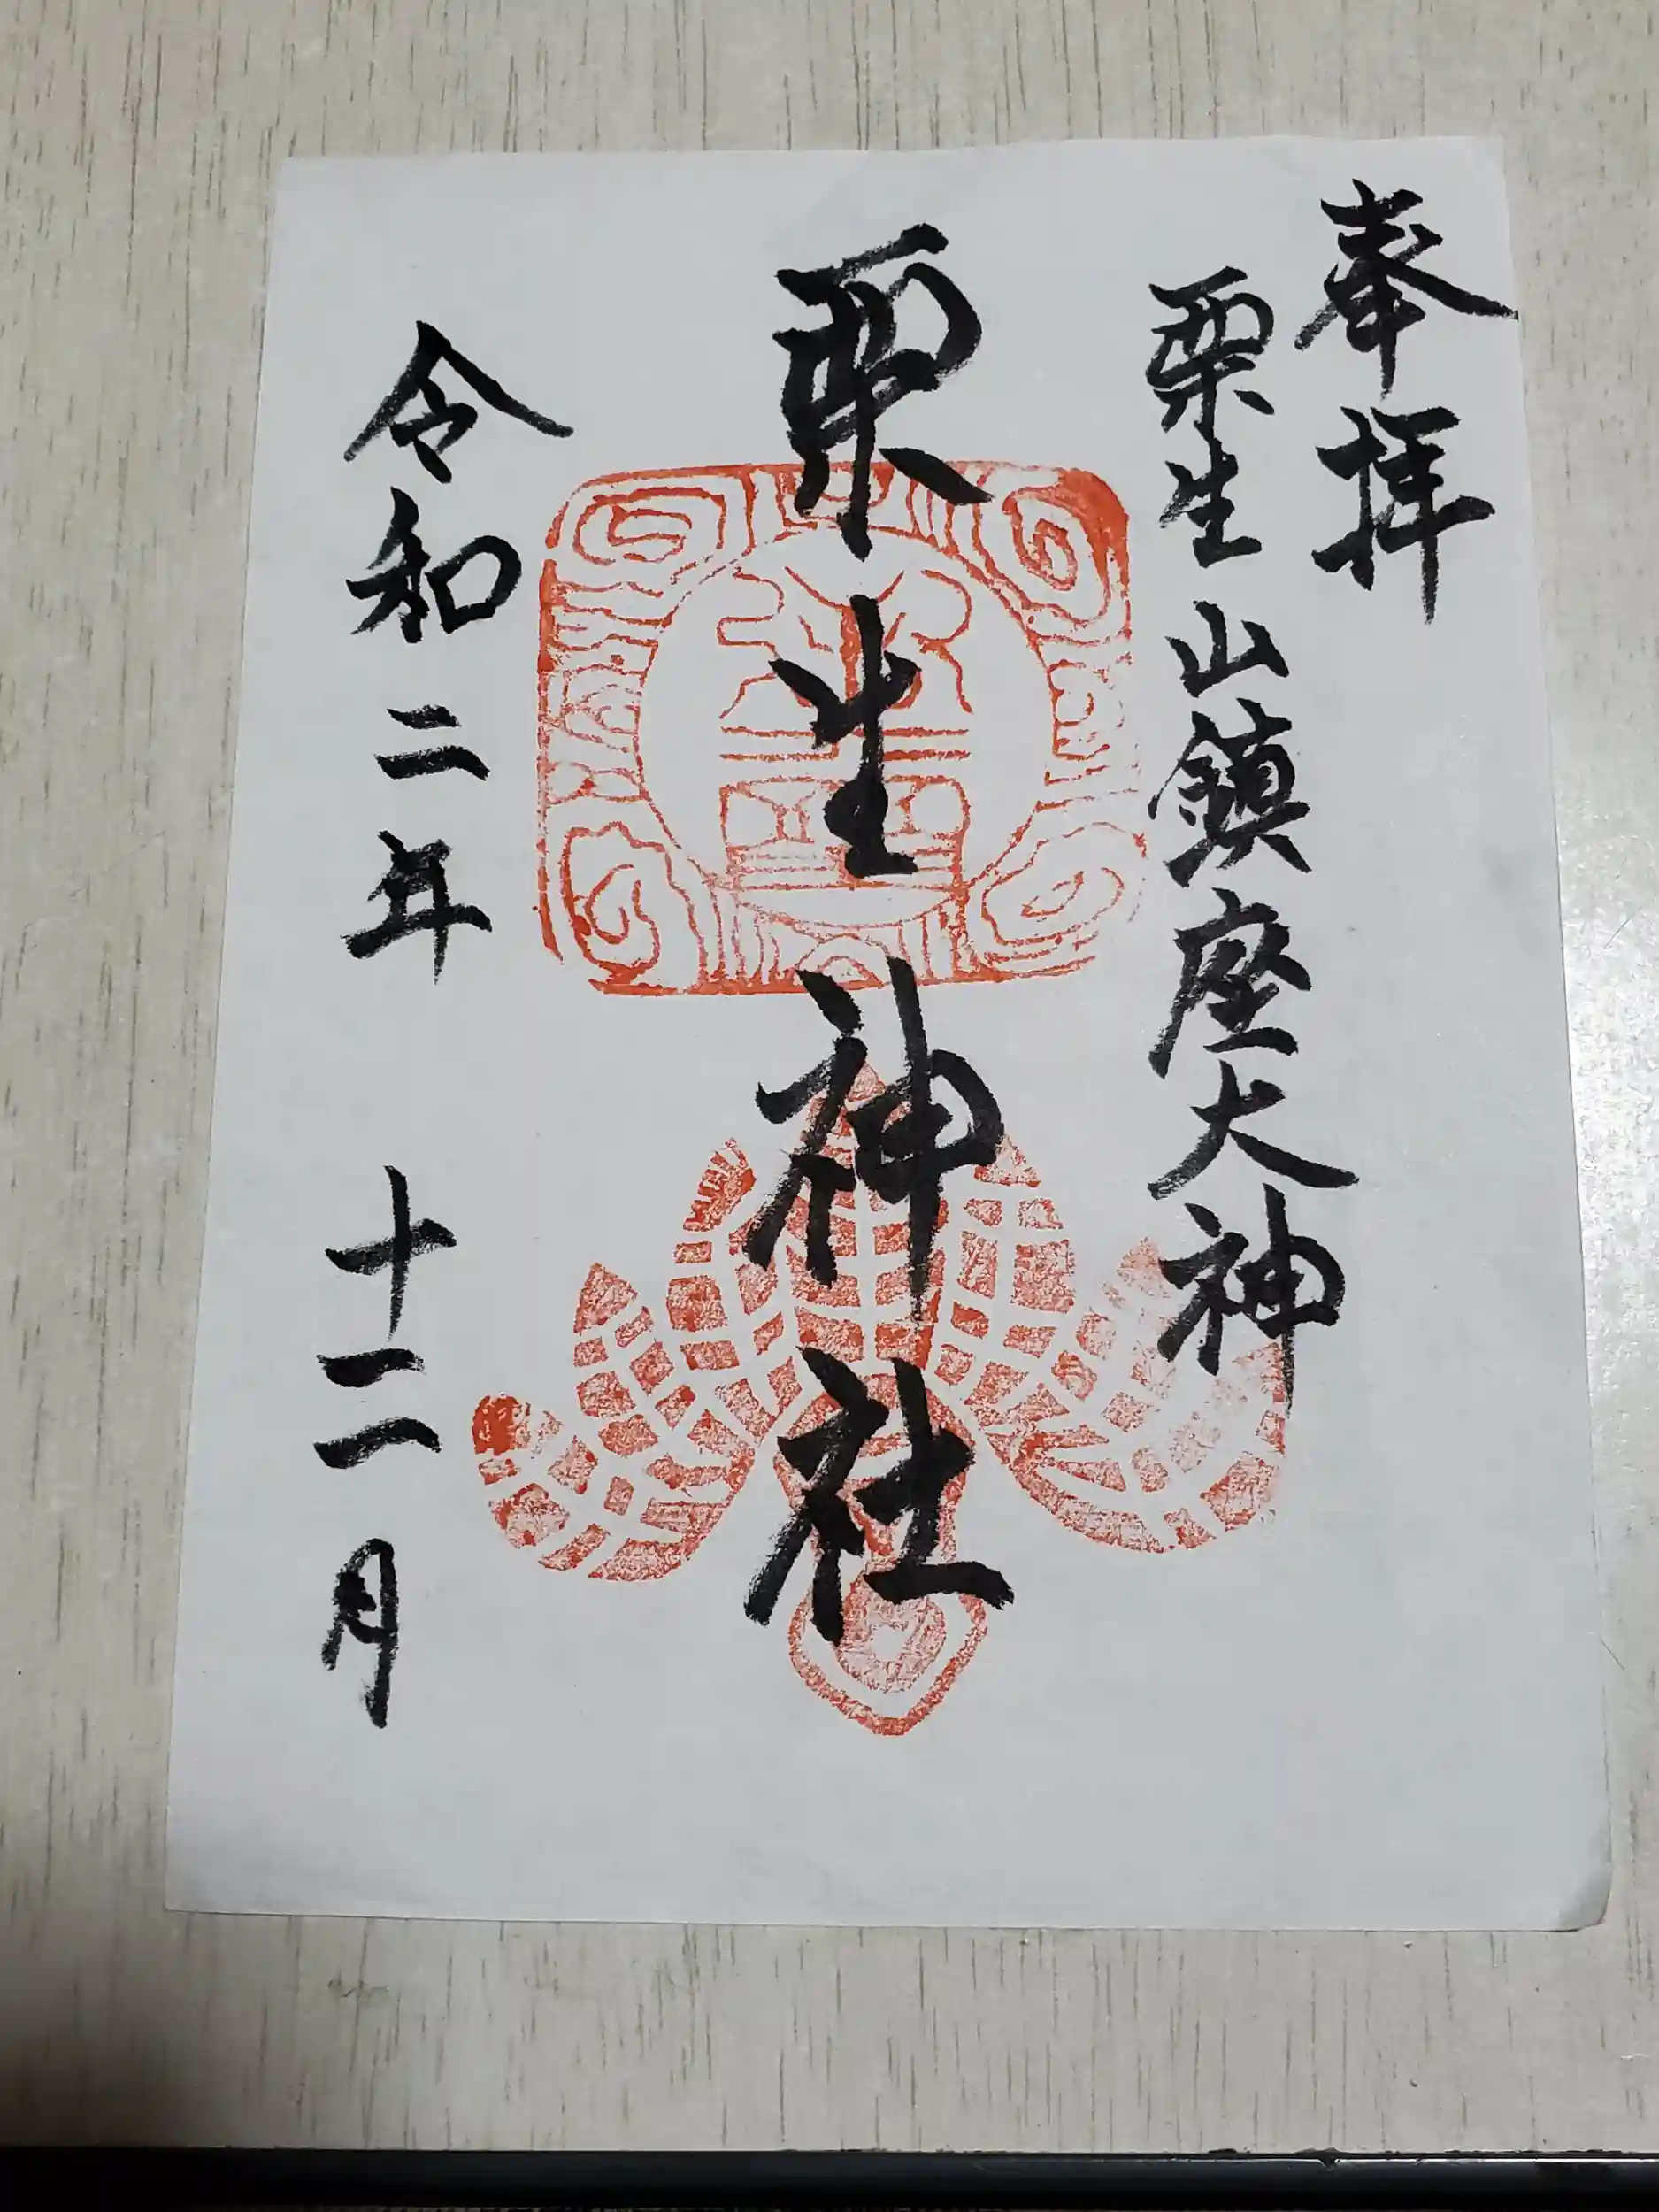 奉拝
栗生山鎮座大神
栗生神社
令和二年 十二月